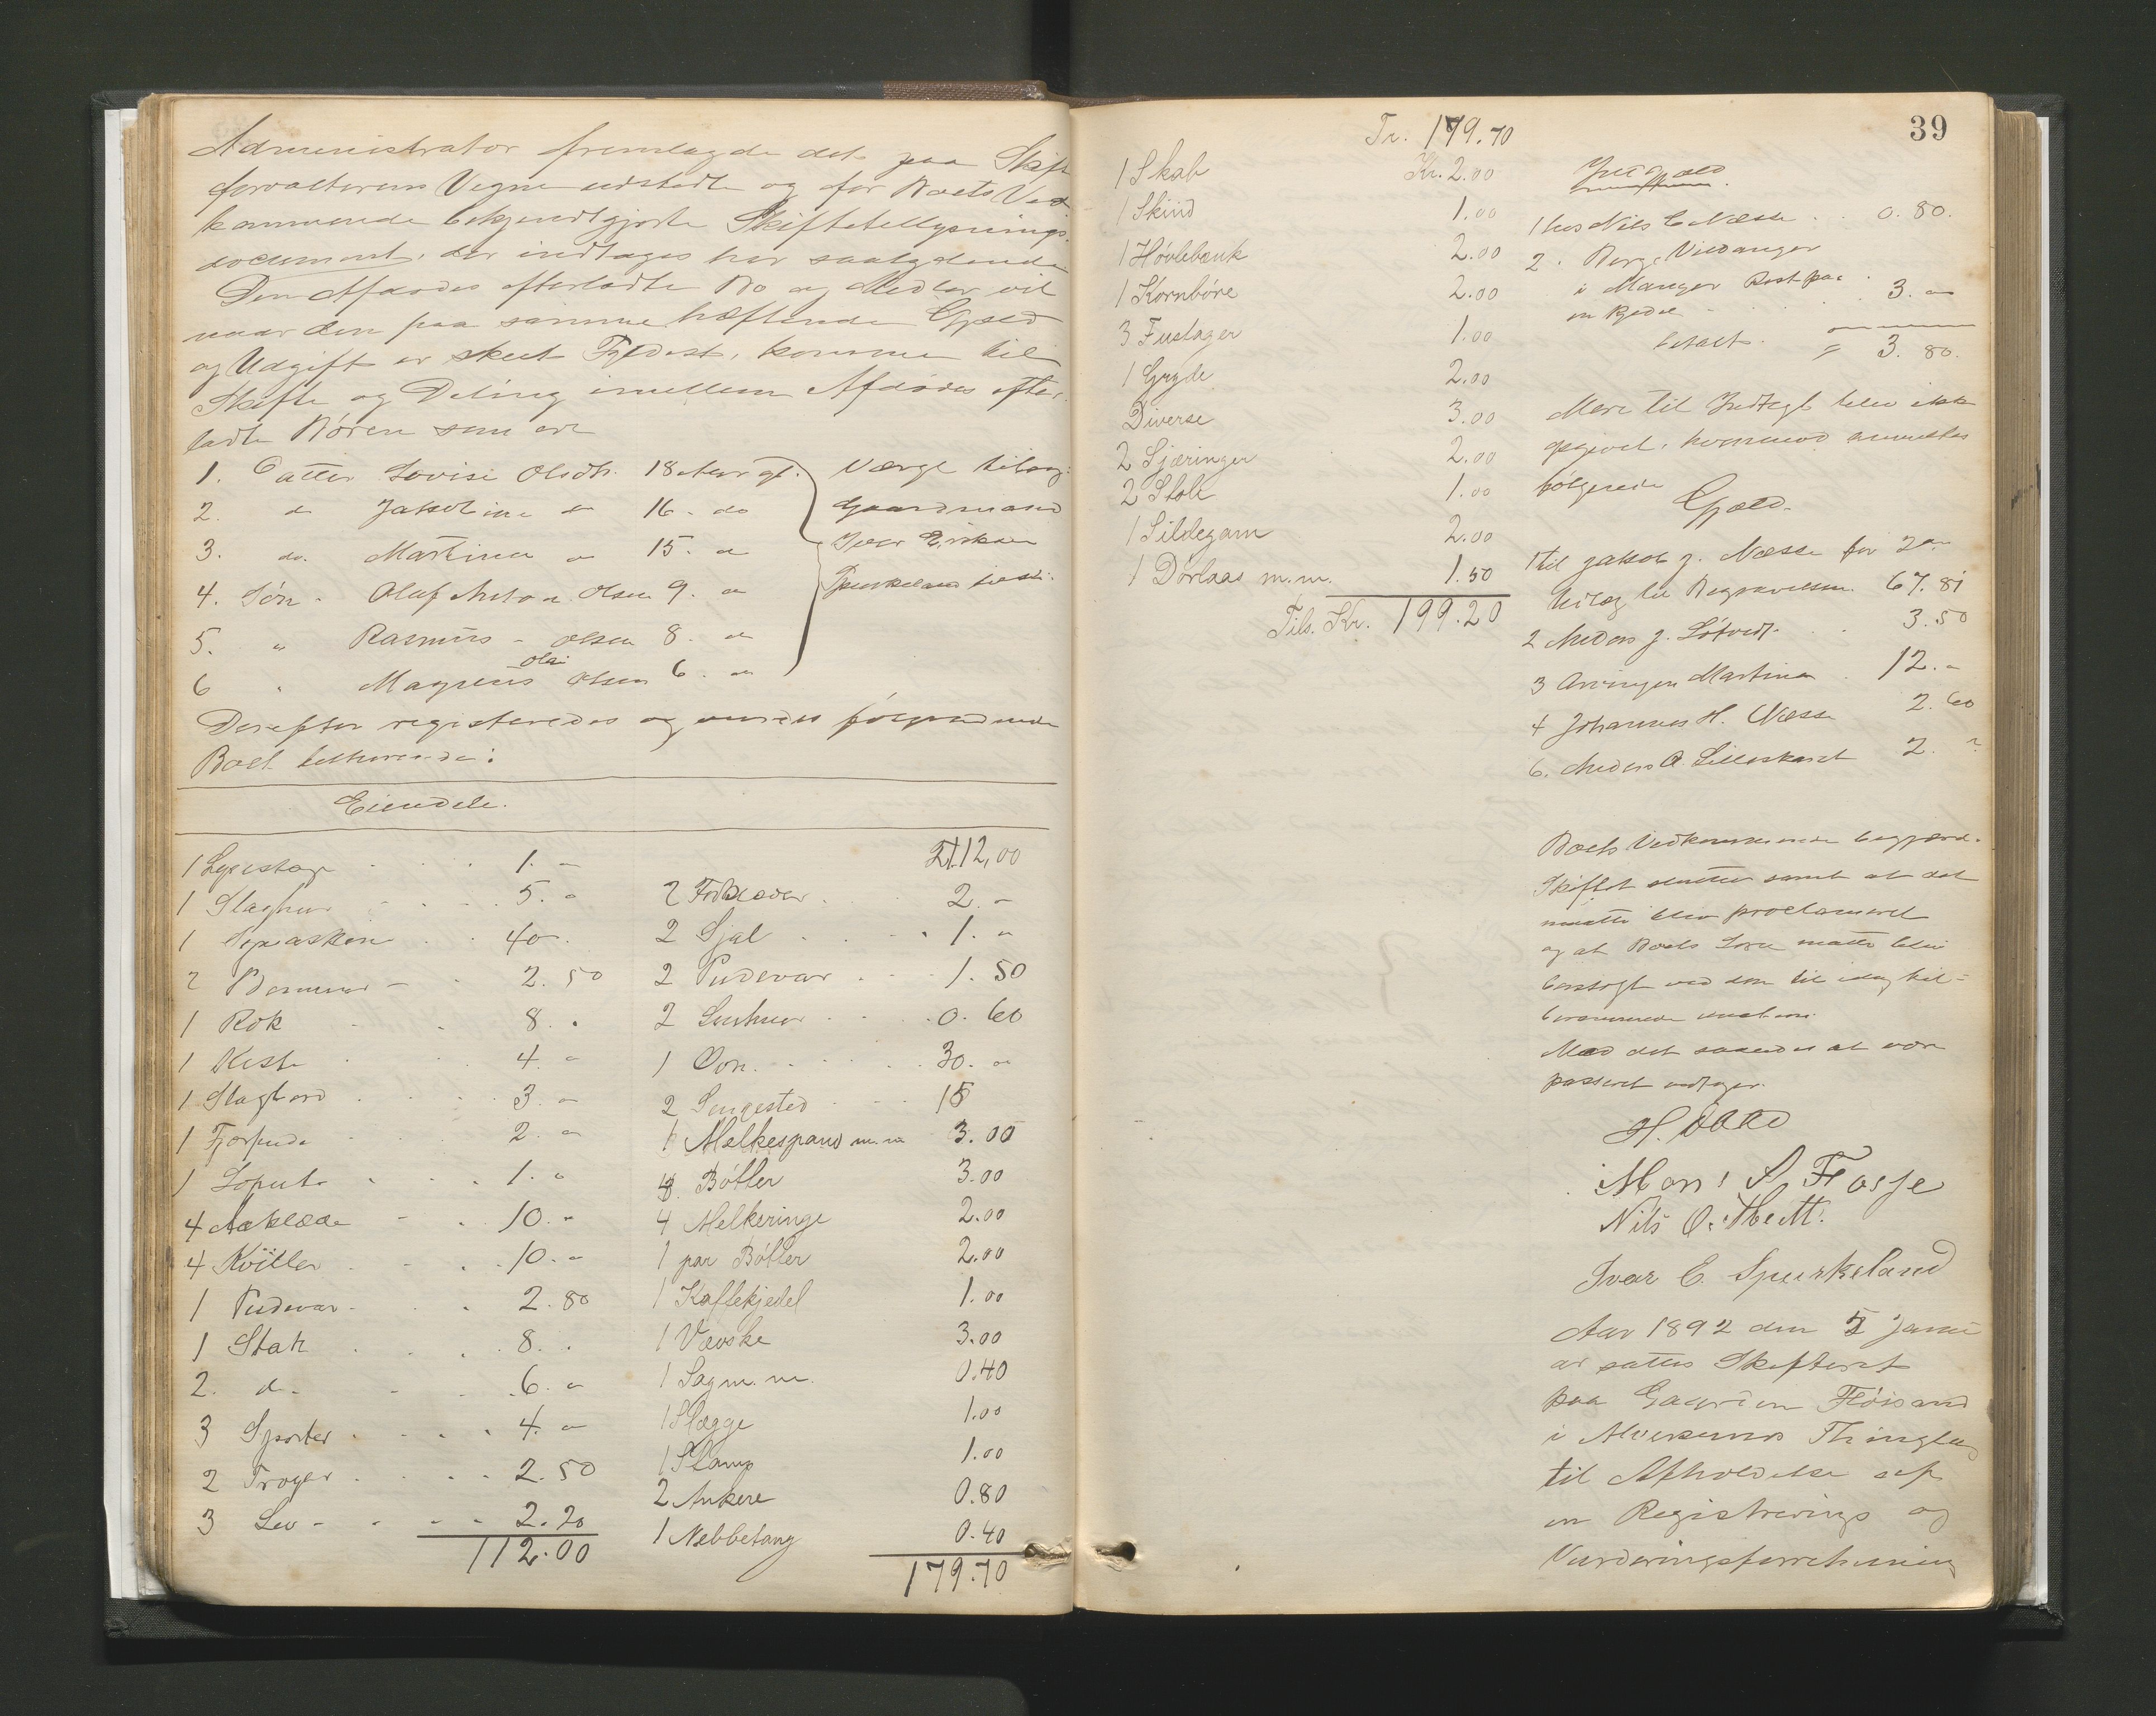 Administrator fremlagde det paa Skifte
forvalterens Vegne udstedte og for Boets Ved
kommende bekjendtgjorte Skiftetillysnings
document, der indtages her saalydende
Den Afdødes efterladte Bo og Midler vil
naar den paa samme heftende Gjæld
og Udgift er skeet Fyldest, komme til
Skifte og Deling imellem Afdødes efter-
ladte Børn som ere
1. Datter Lovise Olsdtr. 18 Aar gl. Værge tilbag:
2. do Jakobine do 16. do Gaardmand
3. do. Martine do 15. do Iver Eriksen
4. Søn - Olaf Anton Olsen 9. do Spurkeland
5. " Rasmus - Olsen 8. do
6 " Magnus Olai Olsen 6. do
Derefter registeredes og vurderes følgende
Boet tilhørende:
Eiendele.
1 Lysestage 1. -
1 5. -
1 40.
2 2. 50
1 Rok 8. .
1 Kiste 4. -
1 Slagbord 3. -
1 Fjærpude 2. -
1 1. -
4 Aaklæde 10. -
4 Kviller 10. -
1 Pudevar 2. 80
1 Stak 8. .
2. do 6. -
3 4. -
2 Trøyer 2. 50
3 2. 20
112.00
Tr. 112,00
2 2. -
2 Sjal 1. -
2 Pudevar 1. 50
2 0. 60
1 Ovn 30. -
2 Sengested 15
1 Melkespand m.m 3. 00
8 Bøtter 3.00
4 Melkeringe 2.00
1 par Bøtter 2.00
1 Kaffekjedel 1.00
1 Vævske 3.00
1 Sag m. m. 0.40
1 Slægge 1.00
1 Stamp 1.00
2 Ankere 0.80
1 Nebbetang 0.40
179.70
39
Tr. 179.70
1 Skab Kr. 2.00
1 Skind 1.00
1 Høvlebænk 2.00
1 Kornbøre 2.00
3 Fustager 1.00
1 Gryde 2.00
Diverse 3.00
2 Sjæringer 2.00
2 Stole 1.00
1 Sildegarn 2.00
1 Dørlaas m.m. 1.50
Tils. Kr. 199.20
Indgjæld
1 hos Nils Næsse 0. 80.
2 . Berge Vildanger
i Manger Rest paa
en Kjedel 3. -
betalt. 3. 80.
Mere til Indtægt blev ikke
opgivet, hvorimod anmeldtes
følgende
Gjæld.
1 til Jakob J. Næsse for
Udlæg til Begravelsen 67. 81
2 Anders J. Løtvedt 3.50
3 Arvingen Martine 12. -
4 Johannes H. Næsse 2. 60
6. Anders A. Lilleskaret 2.
Boets Vedkommende begjærede
Skiftet sluttet samt at det
maatte blive proclameret
og at Boets Løsøre maatte blive
bortsolgt ved den til idag
berammede auction.
Med det saaledes at være
passeret vedtager.
H. Waad
Mons A. Fosse
Nils O.
Ivar E. Spurkeland
Aar 1892 den 5 Janu
ar sattes Skifteret
paa Gaarden Fløisand
i Alversunds Thinglag
til Afholdelse af
en Registrerings og
Vurderingsforretning